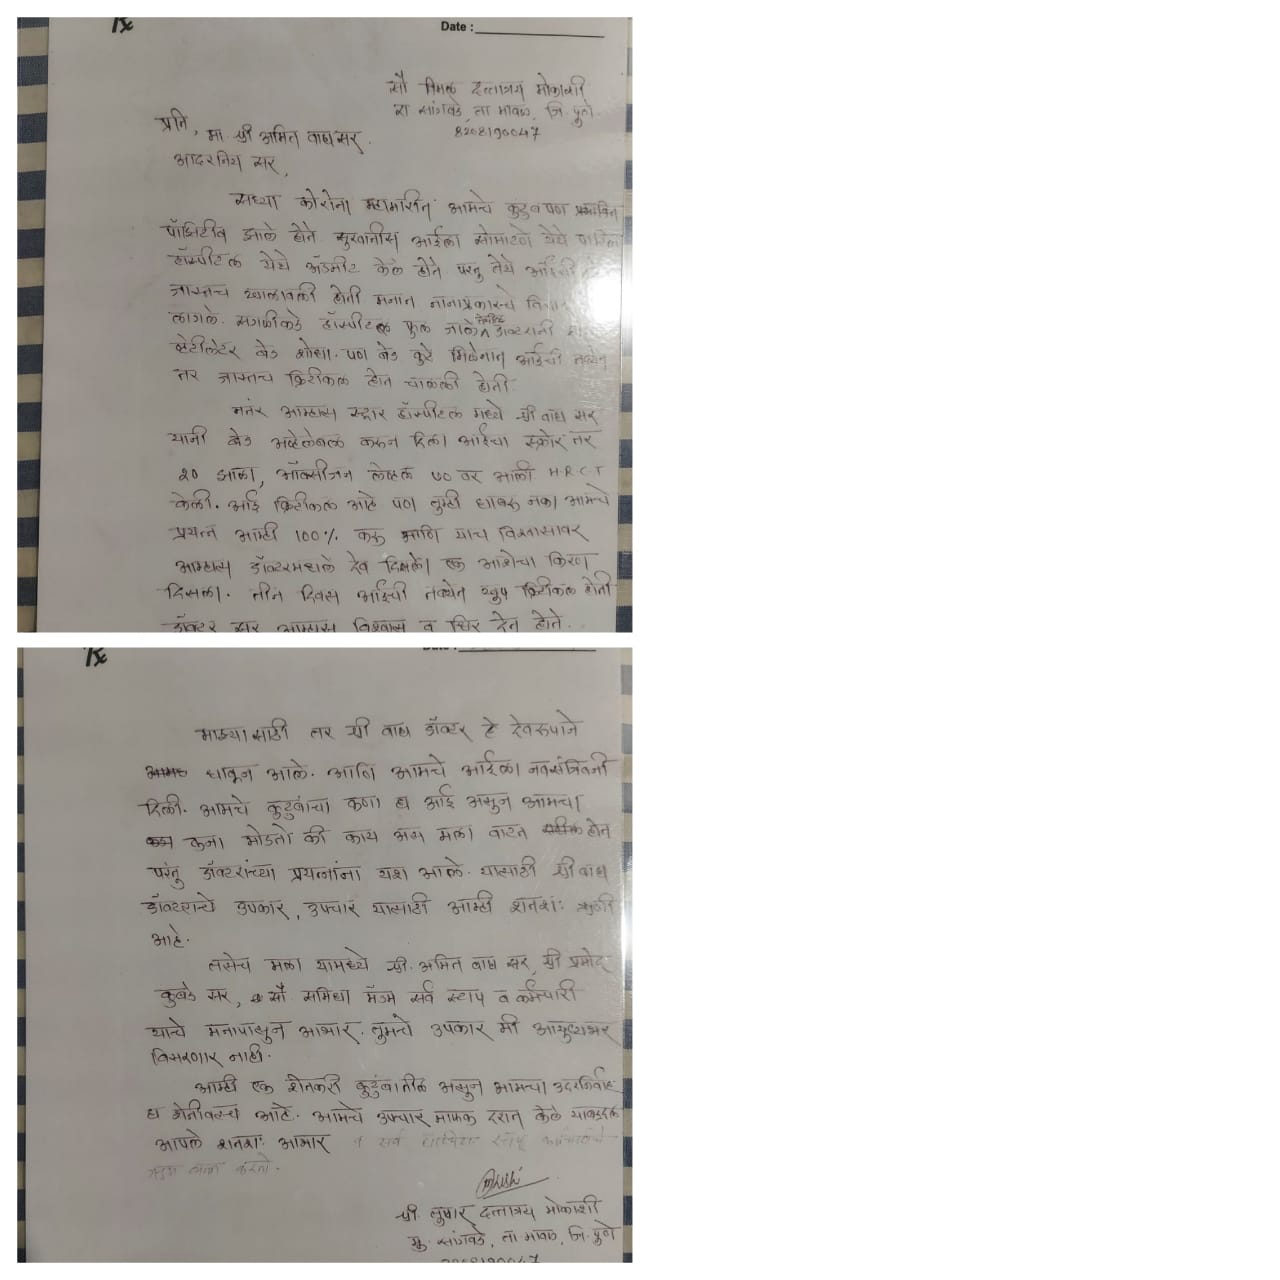 Rx
Date :
सौ विमल दत्तात्रय मोकाशी
रा सांगवडे, ता मावळ, जि. पुणे.
8208190047
प्रति,
मा. श्री अमित वाघ सर.
आदरनिय सर,
सध्या कोरोना महामारीत आमचे कुटुंब पण
पॉझिटीव झाले होते. सुरवातीस आईला सोमाटणे येथे
हॉस्पीटल येथे अ‍ॅडमीट केले होते परंतु तेथे आईची
जास्तच खालावली होती मनात नानाप्रकारचे
लागले. सगळीकडे हॉस्पीटल फुल झाले डॉक्टरांनी
व्हेंटीलेटर बेड शोधा. पण बेड कुठे मिळेनात आईची तब्येत
तर जास्तच क्रिटीकल होत चालली होती.
नतंर आम्हास स्टार हॉस्पीटल मध्ये श्री वाघ सर
यांनी बेड अव्हेलेबल करून दिला आईचा स्कोर तर
२० झाला, ऑक्सीजन लेव्हल ७० वर आली H.R.C.T
केली. आई क्रिटीकल आहे पण तुम्ही घाबरू नका आमचे
प्रयत्न आम्ही 100% करू आणि याच विश्वासावर
आम्हास डॉक्टरमधले देव दिसले। एक आशेचा किरण
दिसला. तीन दिवस आईची तब्येत खुप क्रिटीकल होती
डॉक्टर सर आम्हास विश्वास व धिर देत होते.
Rx
माझ्या साठी तर श्री वाघ डॉक्टर हे देवरूपाने
धावून आले. आणि आमचे आईला नवसंजिवनी
दिली. आमचे कुटुंबाचा कणा हा आई असुन आमचा
कना मोडतो की काय असे मला वाटत होत
परंतु डॉक्टरांच्या प्रयत्नांना यश आले. यासाठी श्री वाघ
डॉक्टराचे उपकार, उपचार यासाठी आम्ही शतशः ऋणी
आहे.
तसेच मला यामध्ये श्री. अमित वाघ सर, श्री प्रमोद
कुबडे सर, सौ. समिधा मॅडम सर्व स्टाप व कर्मचारी
याचे मनापासुन आभार. तुमचे उपकार मी आयुष्यभर
विसरणार नाही.
आम्ही एक शेतकरी कुटुंबातील असुन आमचा उदरनिर्वाह
हा शेतीवरच आहे. आमचे उपचार माफक दरात केले याबद्दल
आपले शतशः आभार व सर्व स्टाफ
करतो.
श्री. तुषार दत्तात्रय मोकाशी
मु. सांगवडे, ता. मावळ, जि. पुणे
8208190047